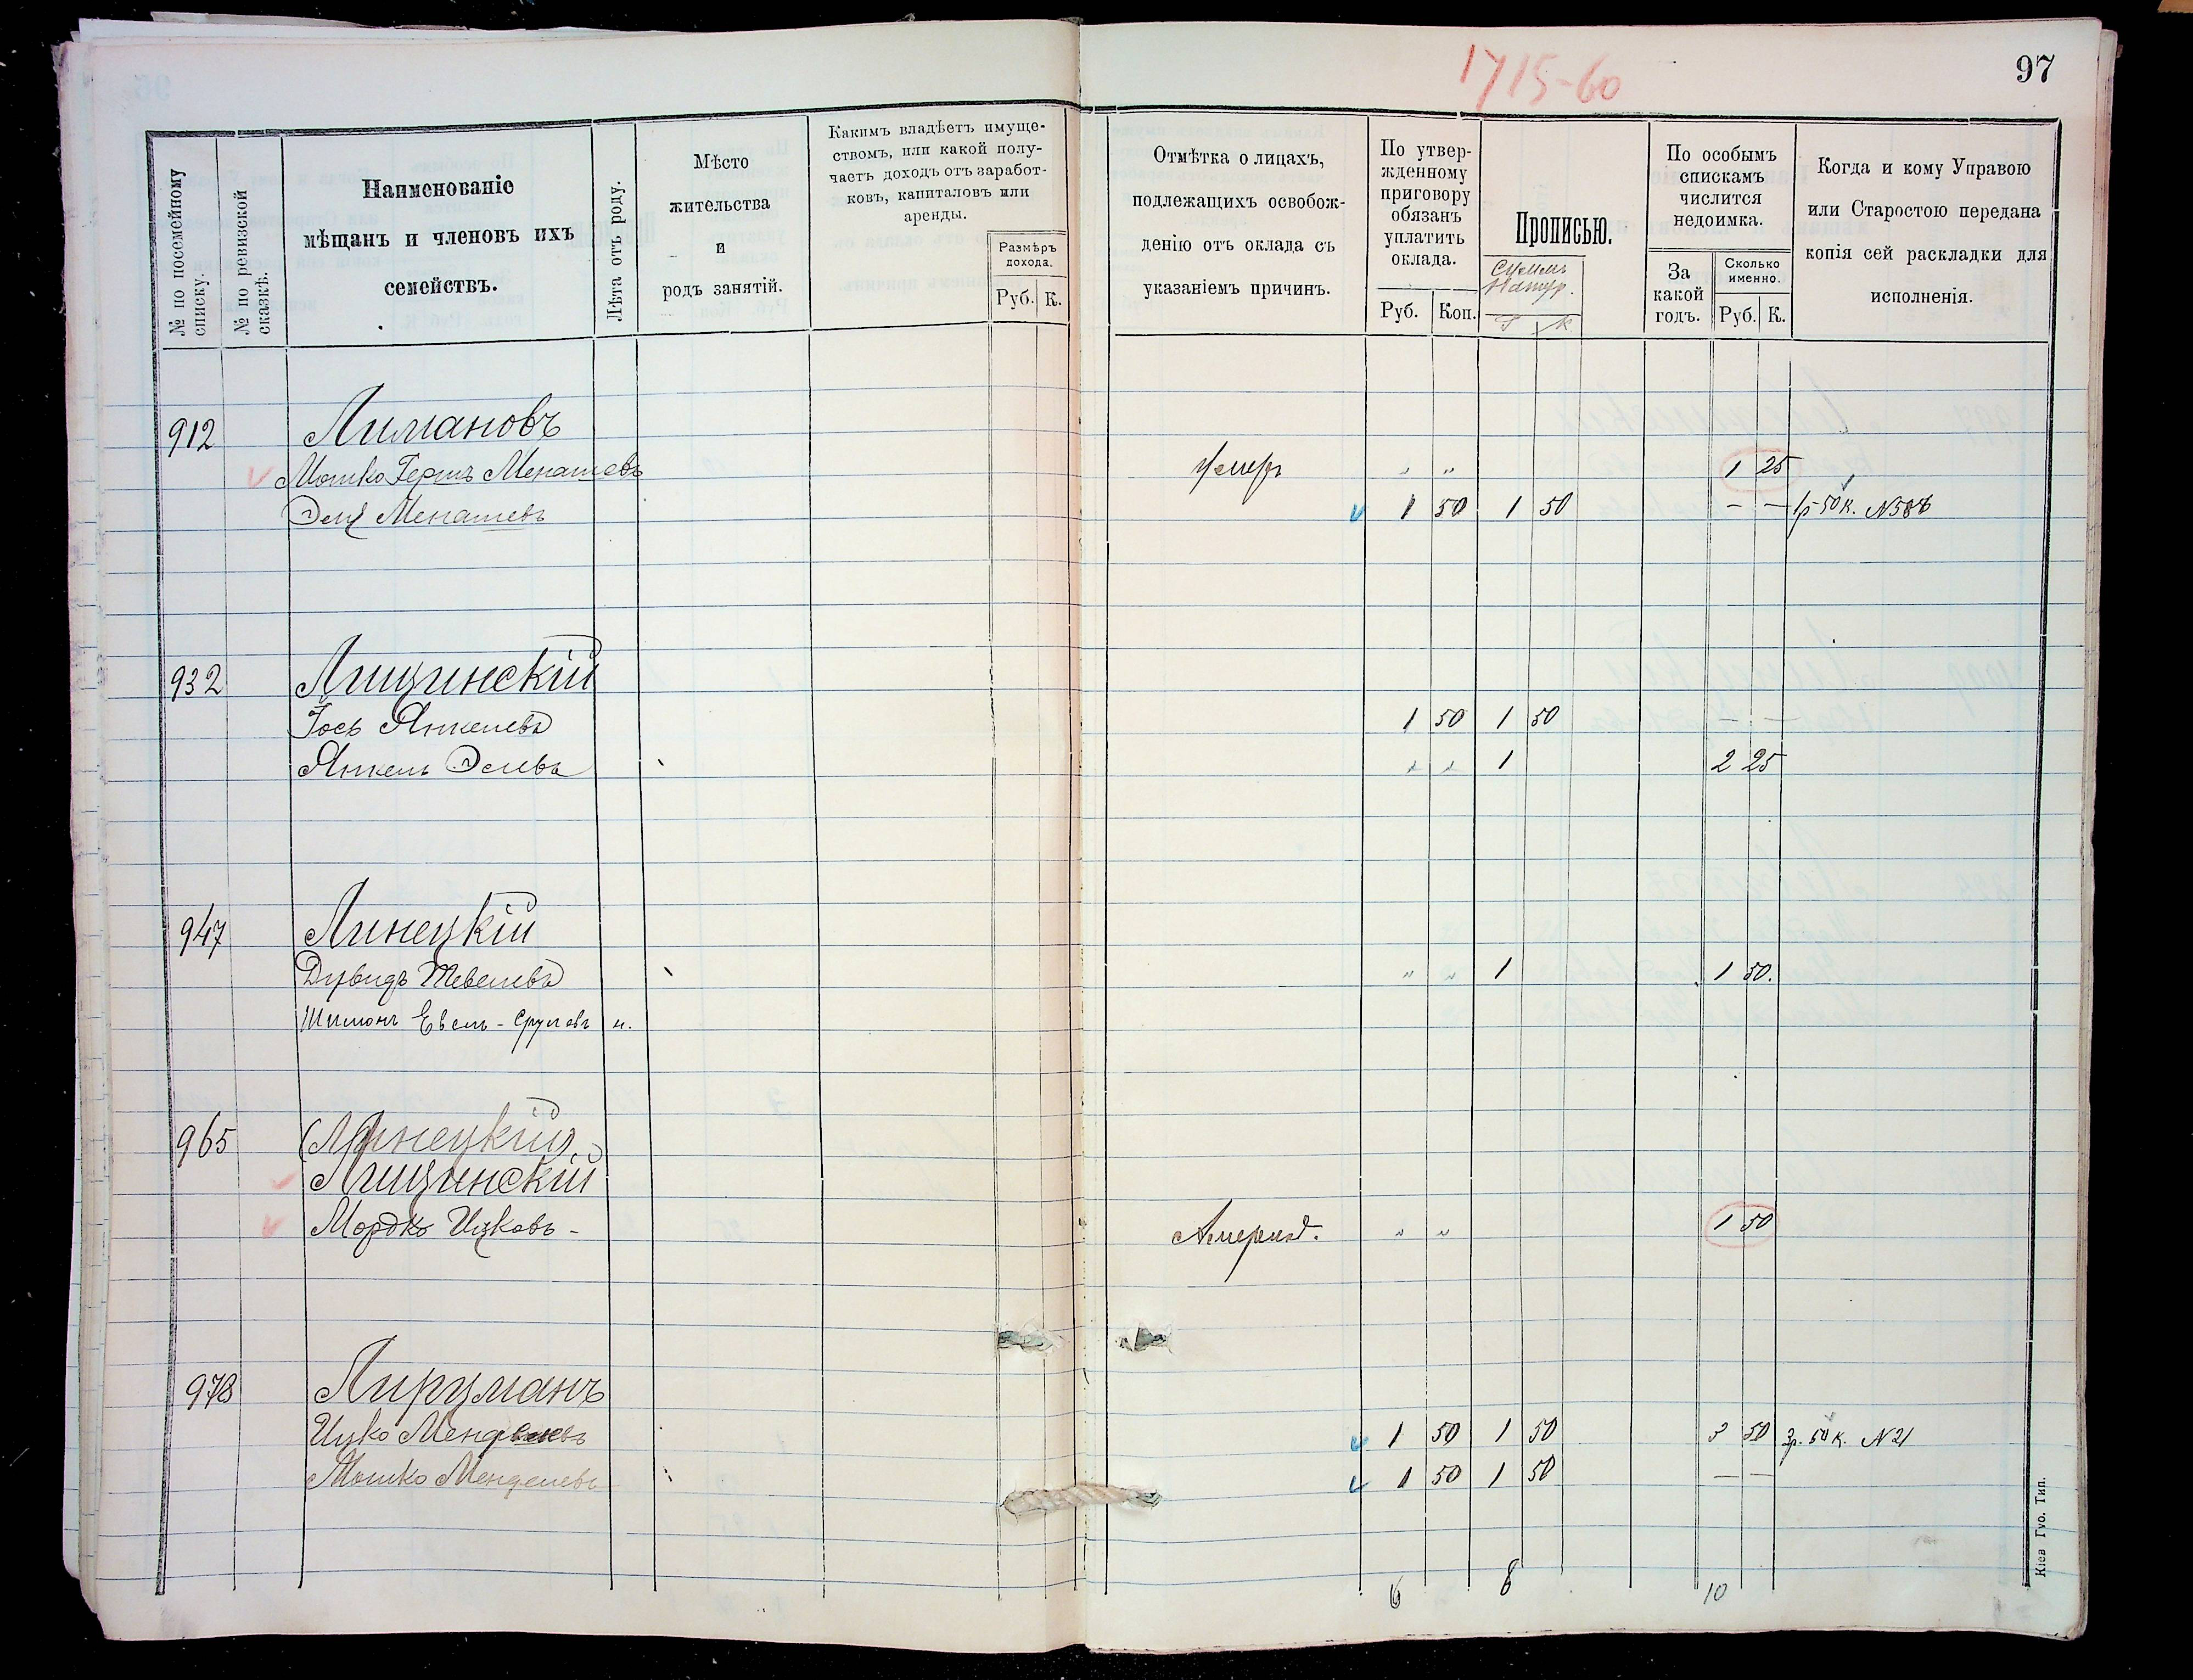 1715-60
97
№ по посемейному списку.
№ по ревизской сказкѣ.
Наименованіе
мѣщанъ и членовъ ихъ
семействъ.
Лѣта отъ роду.
Мѣсто
жительства
и
родъ занятій.
Какимъ владѣетъ имуще-
ствомъ, или какой полу-
чаетъ доходъ отъ заработ-
ковъ, капиталовъ или
аренды.
Размѣръ
дохода.
Руб. К.
Отмѣтка о лицахъ,
подлежащихъ освобож-
денію отъ оклада съ
указаніемъ причинъ.
По утвер-
жденному
приговору
обязанъ
уплатить
оклада.
Руб. Коп.
Прописью.
По особымъ
спискамъ
числится
недоимка.
За
какой
годъ.
Сколько
именно.
Руб. К.
Когда и кому Управою
или Старостою передана
копія сей раскладки для
исполненія.
912 Лимановъ
Мошко Гершъ Менашевъ Умеръ " " 1 25
Эля Менашевъ 1 50 1 50 — — 1р 50 к. N 586
932 Лищинскій
Іось Янкелевъ 1 50 1 50 — —
Янкель Элевъ " " 1 2 25
947 Линецкій
Дувидъ Тевелевъ " " 1 1 50.
Шимонъ Евель-Срулевъ н.
965 (Линецкій)
Лищинскій
Мордко Ицковъ - " " 1 50
978 Лирцманъ
Ицко Менделевъ 1 50 1 50 3 50 3р. 50 к. N 21
Мошко Менделевъ 1 50 1 50 — —
6 8 10
Кіев Губ. Тип.